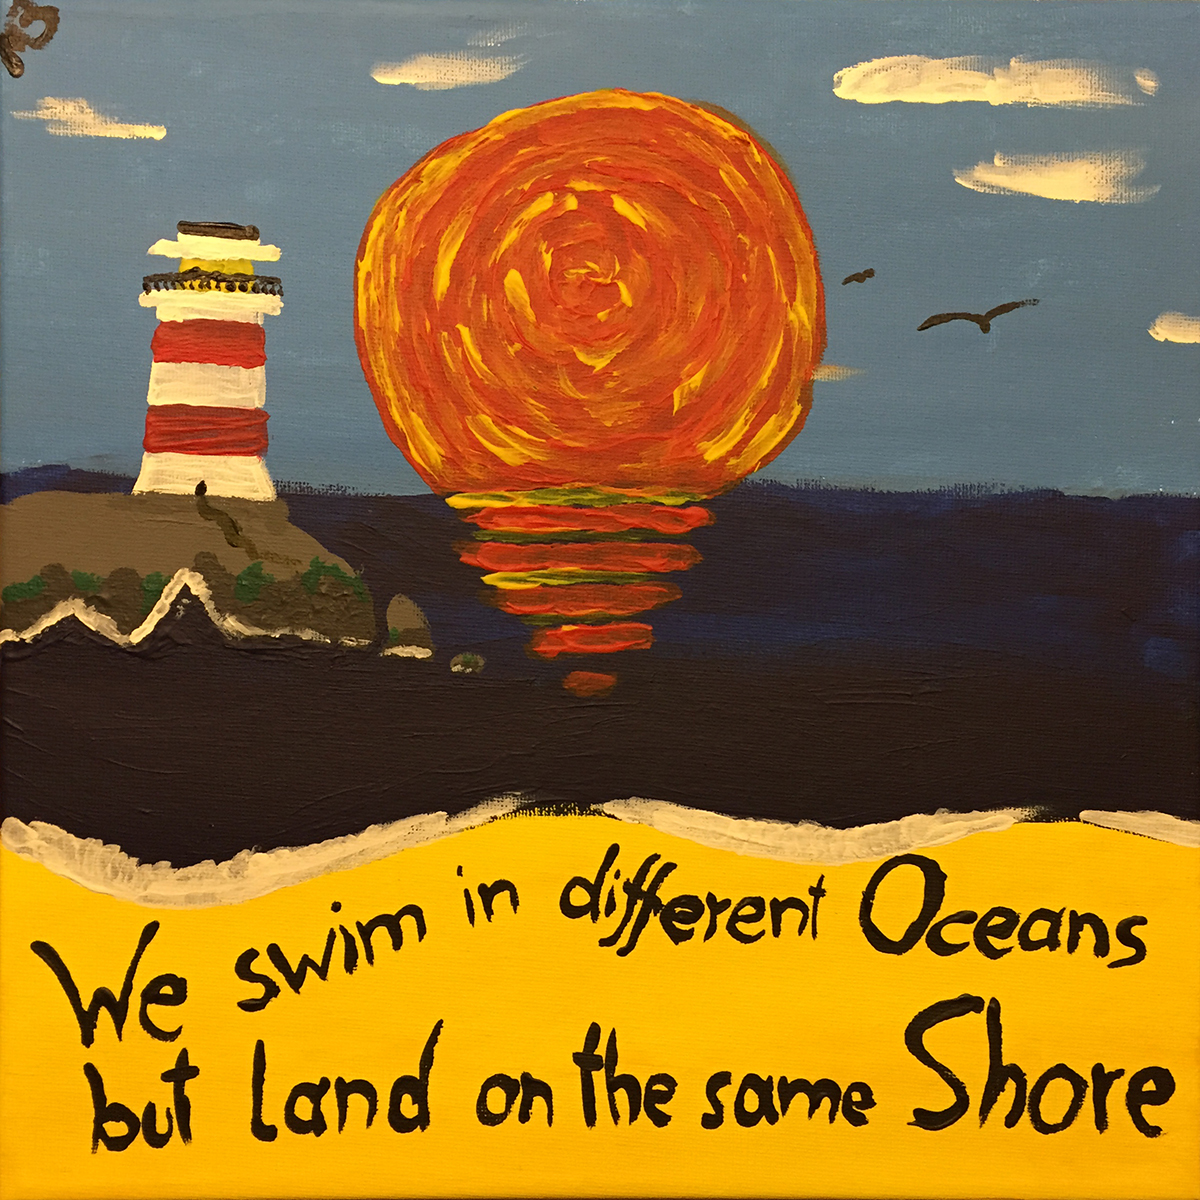 We swim in different Oceans
but land on the same Shore